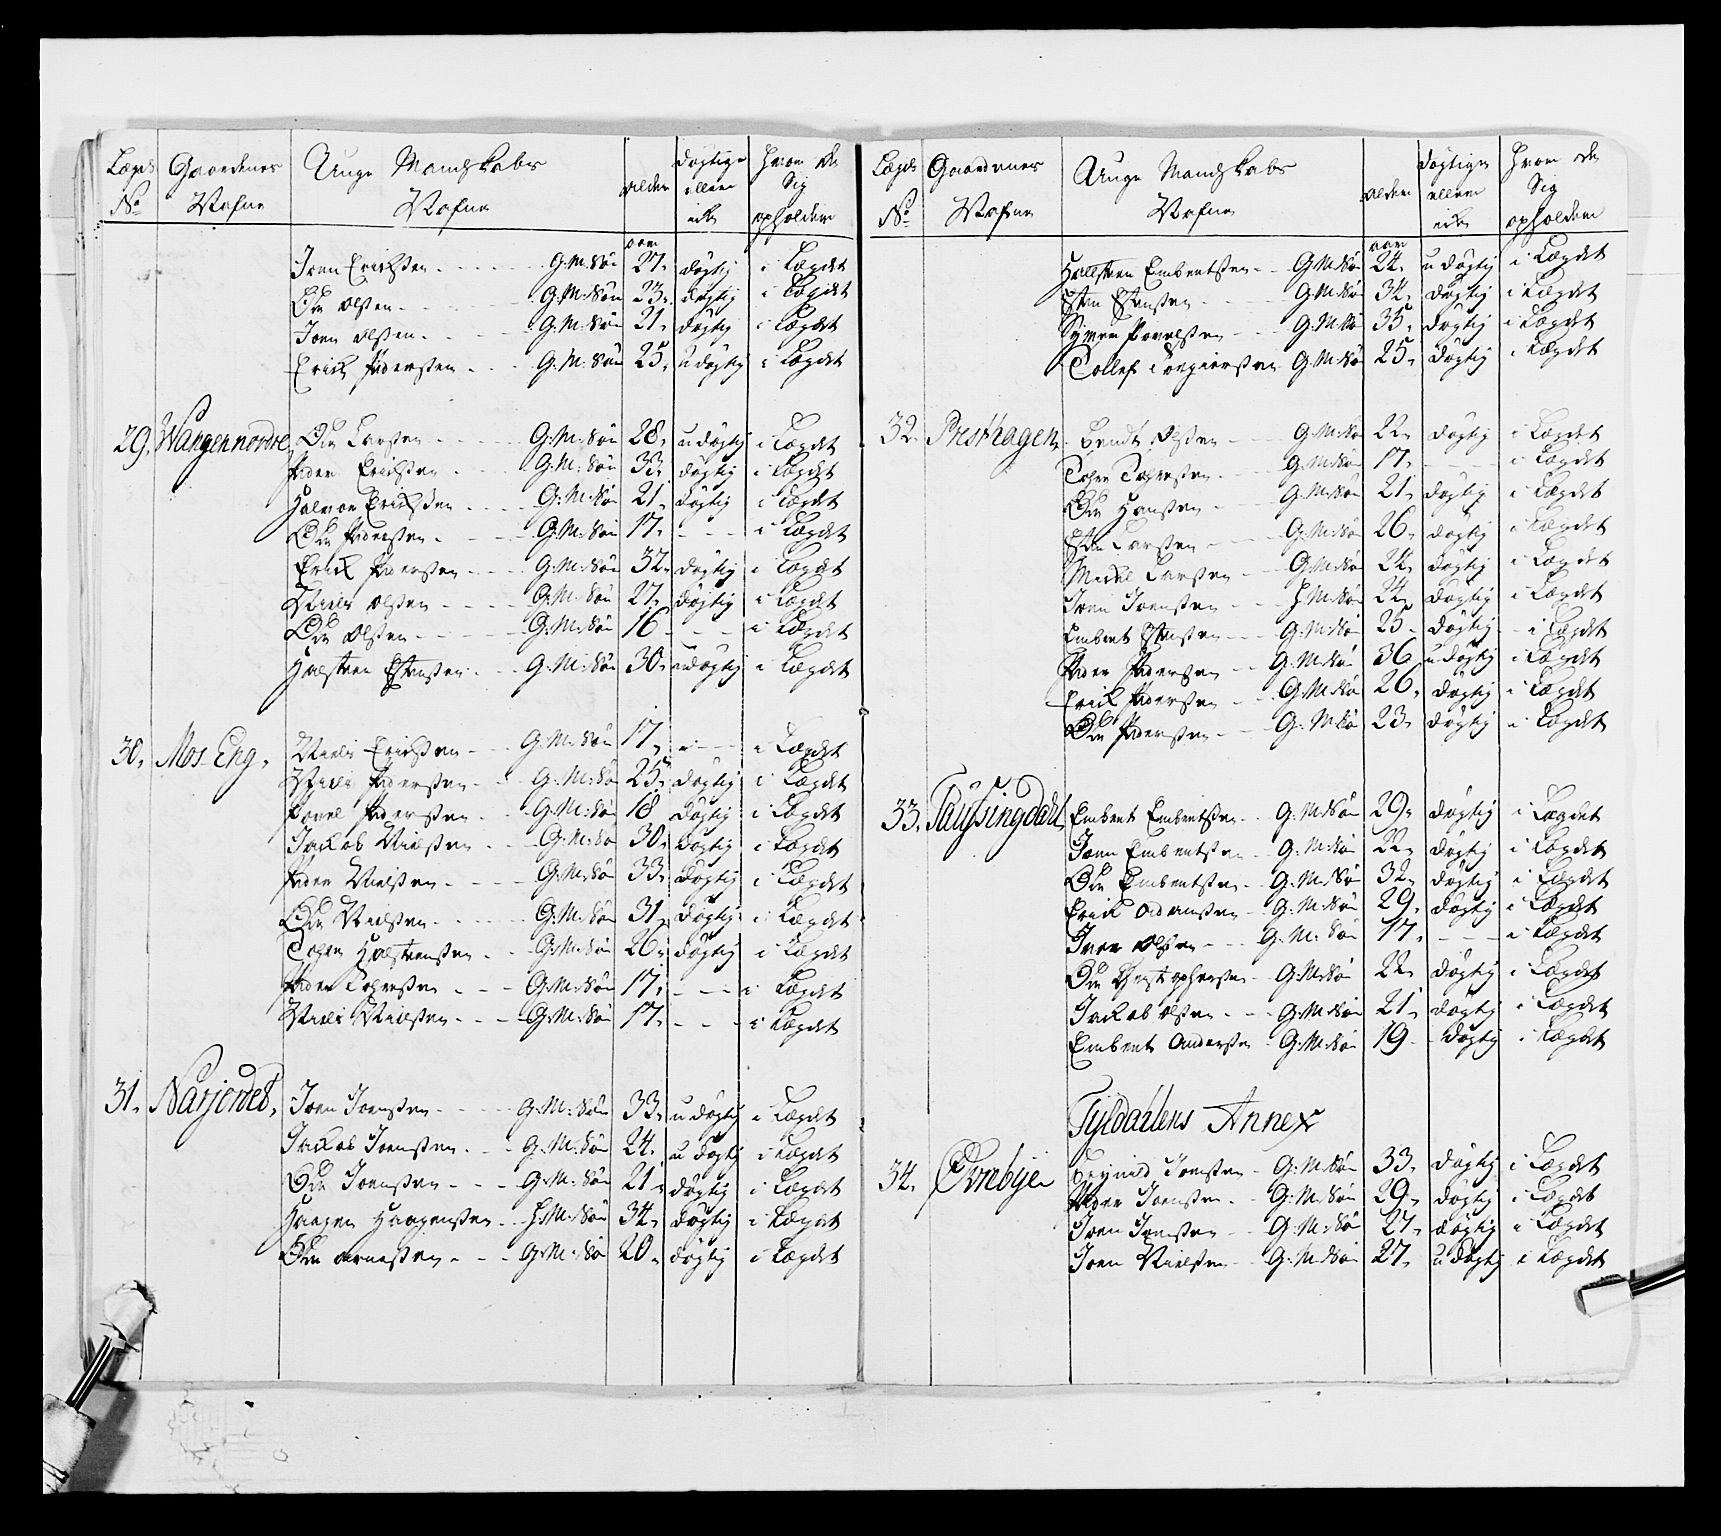 Lægds No Gaardenes Nafne Unge Mandskabs Nafne alder dygtige eller eik hvor de Sig opholder
aar
Iven Erichsen - - - G. M. Søn 27. dygtig i Lægdet
Ole Olsen - - - G. M. Søn 23. dygtig i Lægdet
Joen Olsen - - - G. M. Søn 21. dygtig i Lægdet
Erich Pedersen - - - G. M. Søn 25. udygtig i Lægdet
29. Wangen nordre Ole Larsen - - - G. M. Søn 28. udygtig i Lægdet
Peder Erichsen - - - G. M. Søn 33. dygtig i Lægdet
Halvor Erichsen - - - G. M. Søn 21. dygtig i Lægdet
Ole Pedersen - - - G. M. Søn 17. - - - i Lægdet
Erich Pedersen - - - G. M. Søn 32. dygtig i Lægdet
Niels Olsen - - - G. M. Søn 27. dygtig i Lægdet
Ole Olsen - - - G. M. Søn 16 - - - i Lægdet
Halsteen Estensen - - - G. M. Søn 30. udygtig i Lægdet
30. Mos Eng. Niels Erichsen - - - G. M. Søn 17. - - - i Lægdet
Niels Pedersen - - - G. M. Sø 25. dygtig i Lægdet
Povel Pedersen - - - G. M. Søn 18 dygtig i Lægdet
Jachob Nielsen - - - G. M. Sø 30. dygtig i Lægdet
Peder Nielsen - - - G. M. Søn 33. dygtig i Lægdet
Ole Nielsen - - - G. M. Søn 31. dygtig i Lægdet
Tosten Halsteensen - - G. M. Søn 26. dygtig i Lægdet
Peder - - - G. M. Søn 17. - - - i Lægdet
Niels Nielsen - - - G. M. Søn 17. - - - i Lægdet
31. Narjordet. Joen Joensen - - - G. M. Søn 33. udygtig i Lægdet
Jachob Joensen - - - G. M. Søn 24. udygtig i Lægdet
Ole Joensen - - - G. M. Søn 21. dygtig i Lægdet
Haagen Haagensen - - H. M. Søn 34. dygtig i Lægdet
Ole Arnesen - - - G. M. Sø 20. dygtig i Lægdet
Lægds No Gaardenes Nafne Unge Mandskabs Nafne alder dygtige eller eik hvor de Sig opholder
aar
Hallsteen Embretsen - - G. M. Søn 24. udygtig i Lægdet
Esten Estensen - - - G. M. Søn 34. dygtig i Lægdet
Symen Povelsen - - - G. M. Sø 35. dygtig i Lægdet
Tollef Torgiersen G. M. Sø 25. dygtig i Lægdet
32. Præsthagen Bendt Olsen - - - G. M. Sø 22. dygtig i Lægdet
- - - G. M. Søn 17. - - - i Lægdet
Ole Hansen - - - G. M. Søn 21. dygtig i Lægdet
Esten Larsen - - - G. M. Søn 26. dygtig i Lægdet
Michel Larsen - - G. M. Søn 24. dygtig i Lægdet
Iven Joensen - - H. M. Søn 24. dygtig i Lægdet
Embret Estensen - - G. M. Søn 25 - dygtig - i Lægdet
Peder Pedersen - - G. M. Søn 36 udygtig i Lægdet
Erich Pedersen - - G. M. Sø 26. dygtig i Lægdet
Ole Pedersen - - G. M. Sø 23. dygtig i Lægdet
33. Embret Embretsen - - G. M. Søn 29. dygtig i Lægdet
Joen Embretsen - G. M. Søn 22. dygtig i Lægdet
Ole Embretsen - G. M. Søn 32. dygtig i Lægdet
Erich - G. M. Søn 29. dygtig i Lægdet
Iver Olsen - - - G. M. Søn 17. - - - i Lægdet
Ole Christophersen - G. M. Søn 22 dygtig i Lægdet
Jachob Olsen - - - G. M. Søn 21. dygtig i Lægdet
Embret Andersen - G. M. Søn 19 - dygtig i Lægdet
Tyldallens Annex
34. Ovnebye Joensen - G. M. Søn 33. dygtig i Lægdet
Peder Joensen - - G. M. Søn 29. dygtig i Lægdet
Joen Joensen - - G. M. Søn 27. dygtig i Lægdet
Joen Nielsen - - G. M. Søn 27. udygtig i Lægdet